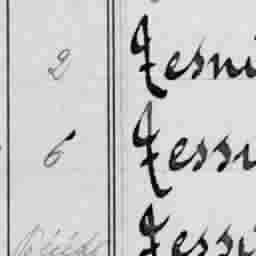 2 Jesni
6 Jessi
Jessi